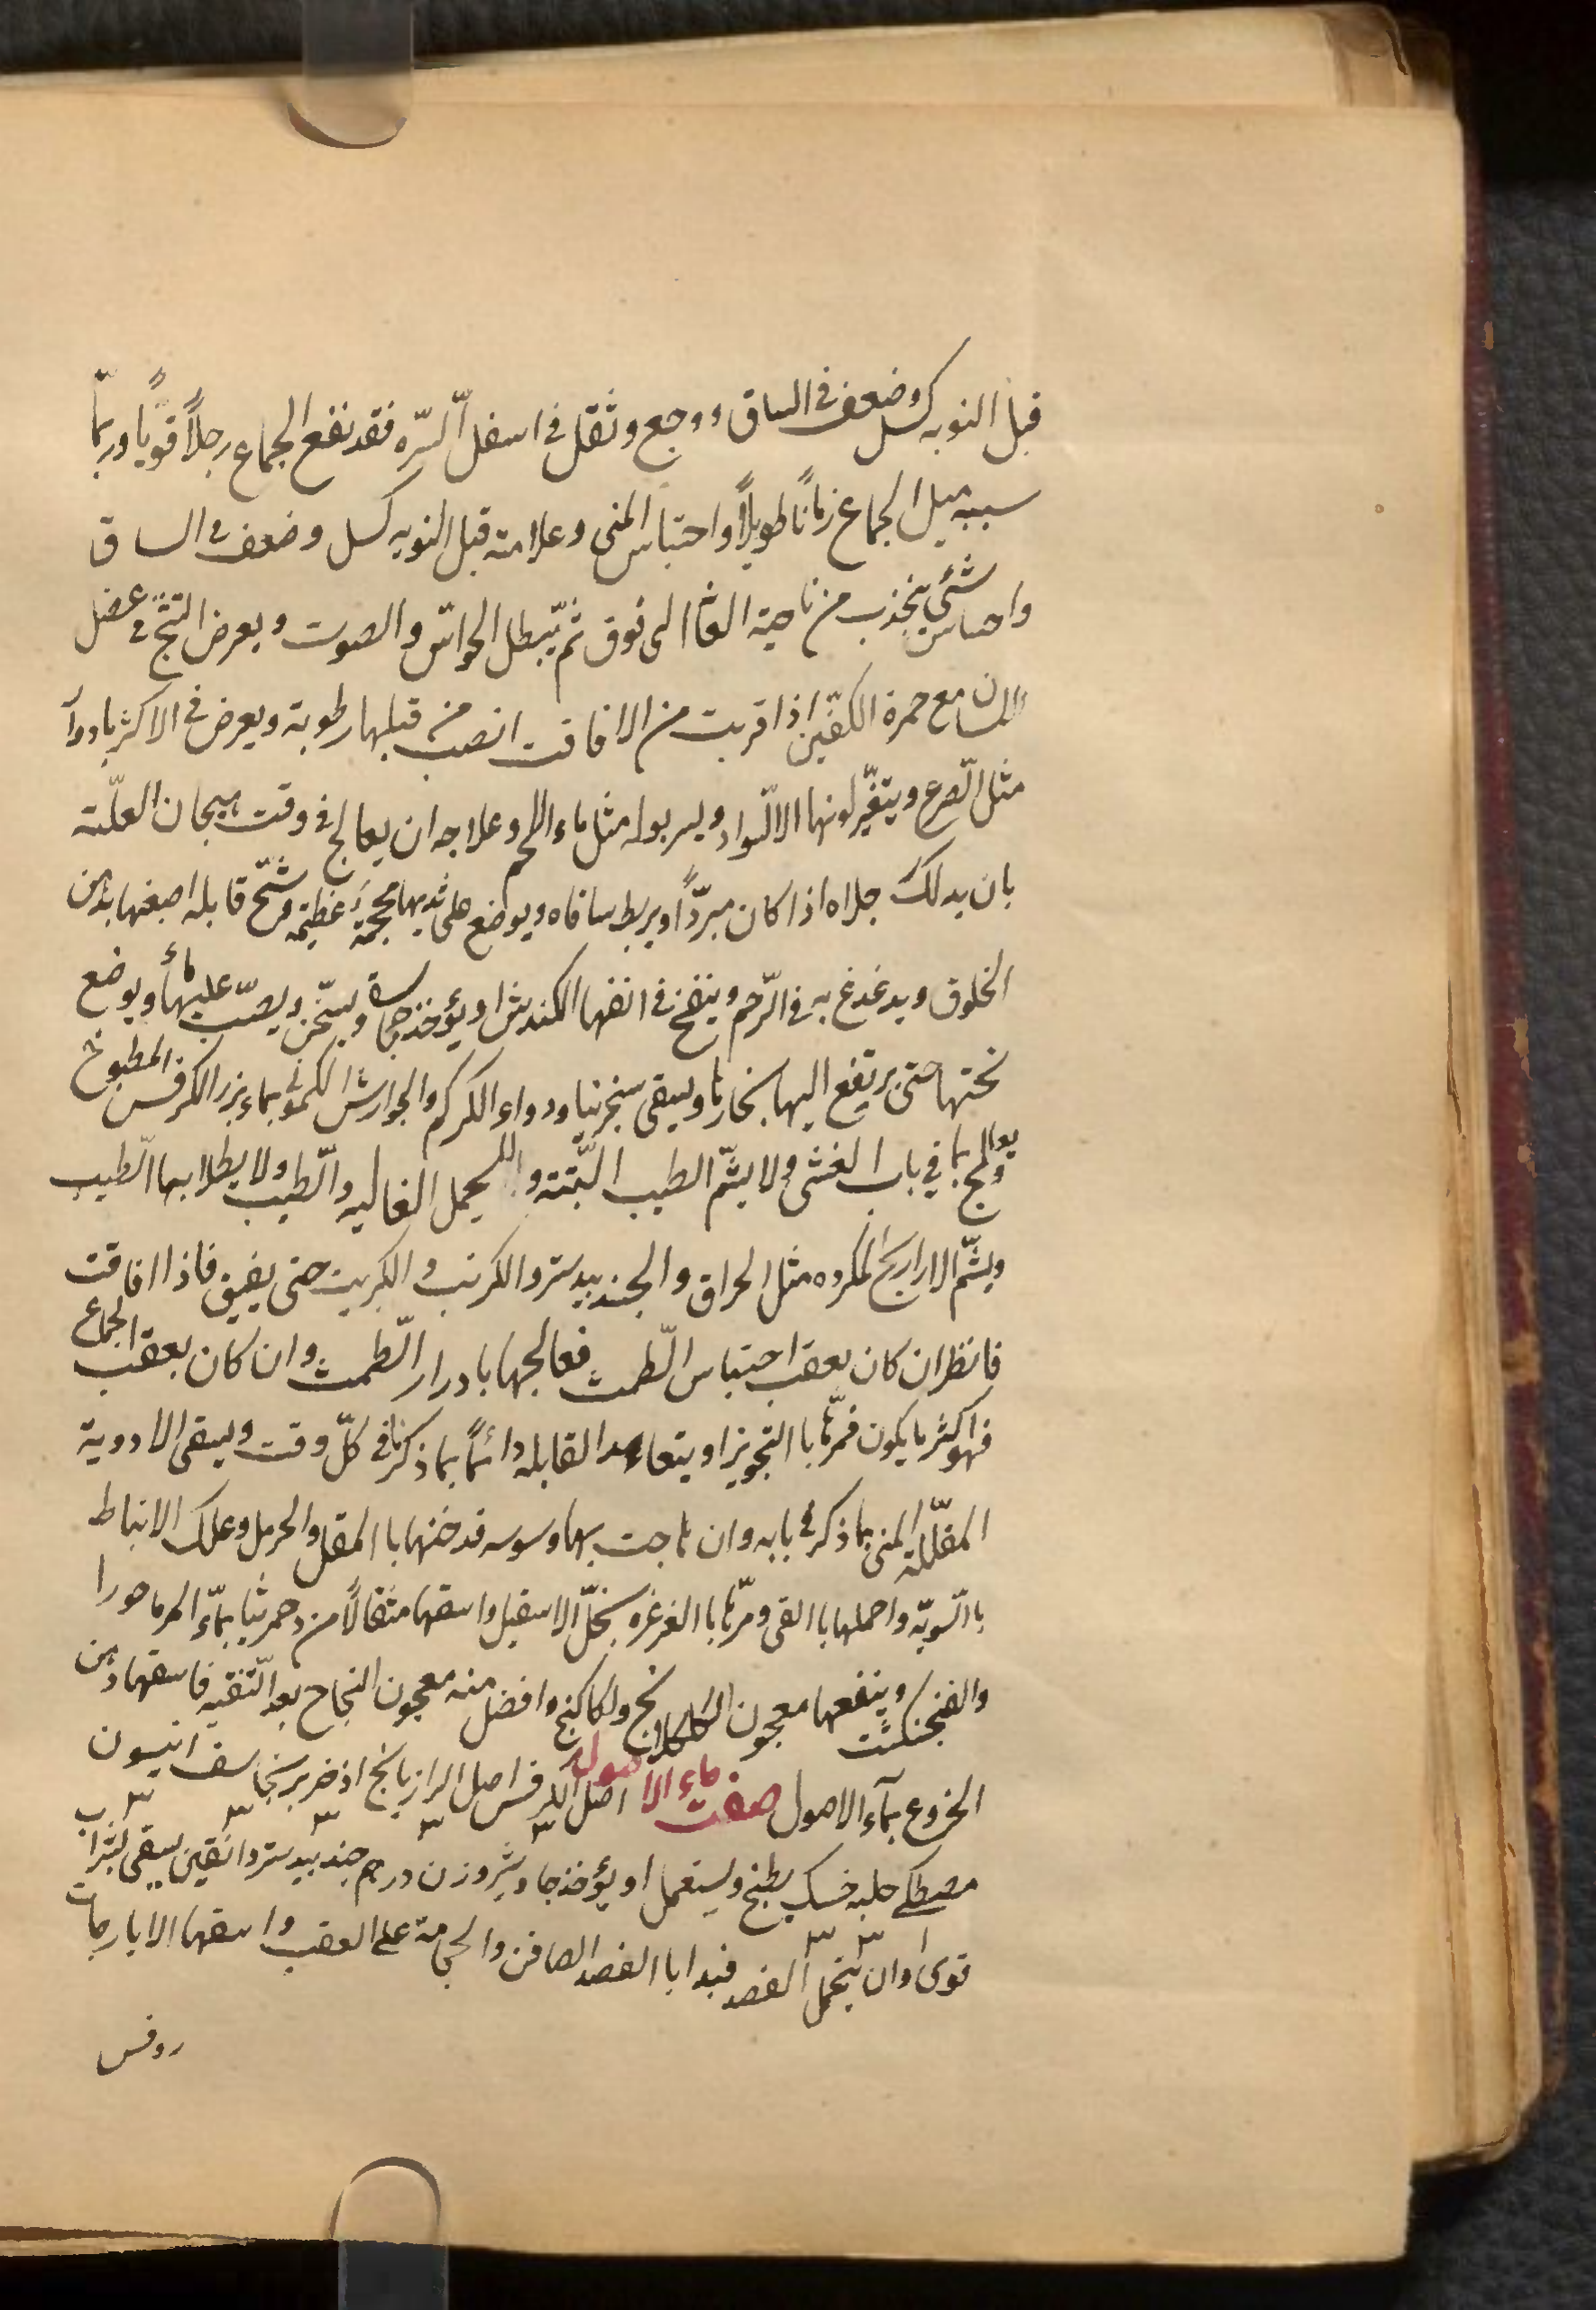 قبل النوبه كسل وضعف فى الساق ووجع وثقل فى اسفل السّره فقد نفع الجماع رجلاً قويّاً وربّما
سببه ميل الجماع زماناً طويلاً واحتباس المنى وعلامته قبل النوبه كسل وضعف فى الساق
واحساس شئ ينجذب من ناحية العانة الى فوق ثم يبطل الحواسّ والصوت ويعرض التشنّج فى عضل
مع حمرة الكفّين اذا قربت من الافاقت انصب من قبلها رطوبة ويعرض فى الاكثر بادوار
مثل الصّرع ويتغيّر لونها الا السّواد ويسر بوله مثل ماء اللحم وعلاجه ان يعالج فى وقت هيجان العلّته
بان يدلك جلاه اذا كان مبرّداً ويربط ساقاه ويوضع على ثديها محجمة عظيمه وتمسّح قابله اصبعها بدهن
الخلوق ويدغدغ به فى الرّحم وينفخ فى انفها الكندش او يؤخذ ويسخّن ويصبّ عليها ماءً ويوضع
تحتها حتى يرتفع اليها بخارها ويسقى سنجرنيا ودواء الكركم والجوارش الكمونى بماء بزر الكرفس المطبوخ
ويعالج بما فى باب الغشى ولا يشمّ الطيب البتّته و يحمل الغاليه والطّيب ولا يطلا بها الطّيب
ويشمّ الاراريح المكروه مثل الحراق والجندبيدستر والكرنب والكبريت حتى يفيق فاذا افاقت
فانظر ان كان بعقب احتباس الطّمث فعالجها بادرار الطّمث وان كان بعقب الجماع
فهو اكثر ما يكون فمرّها با التجويز او يتعاهد القابله دائماً بما ذكرنا فى كلّ وقت ويسقى الادوية
المقلّلة المنى بما ذكر فى بابه وان هاجت بها وسوسه فدخنها با المقل والحرمل وعلك الانباط
با السّويّه واحملها با القى ومرّها با الغرغره بخلّ الاسقيل واسقها مثقالاً من دحمرثا بماء المرماحورا
والفنجنكشت وينفعها معجون الكلكلانج ولكاكنج وافضل منه معجون النجاح بعد التّنقيه فاسقها دهن
الخروع بماء الاصول صفت ماء الاصول اصل الكرفس اصل الرازيانج اذخر برنجاسف انيسون
مصطكى حلبه خسك يطبخ ويستعمل او يؤخذ جاوشير وزن درهم جندبيدستر دانقين يسقى بشراب
قوى وان يتحمل الفصد فبدا با الفصد الصافن والحجامة على العقب واسقها الايارجات
روفس